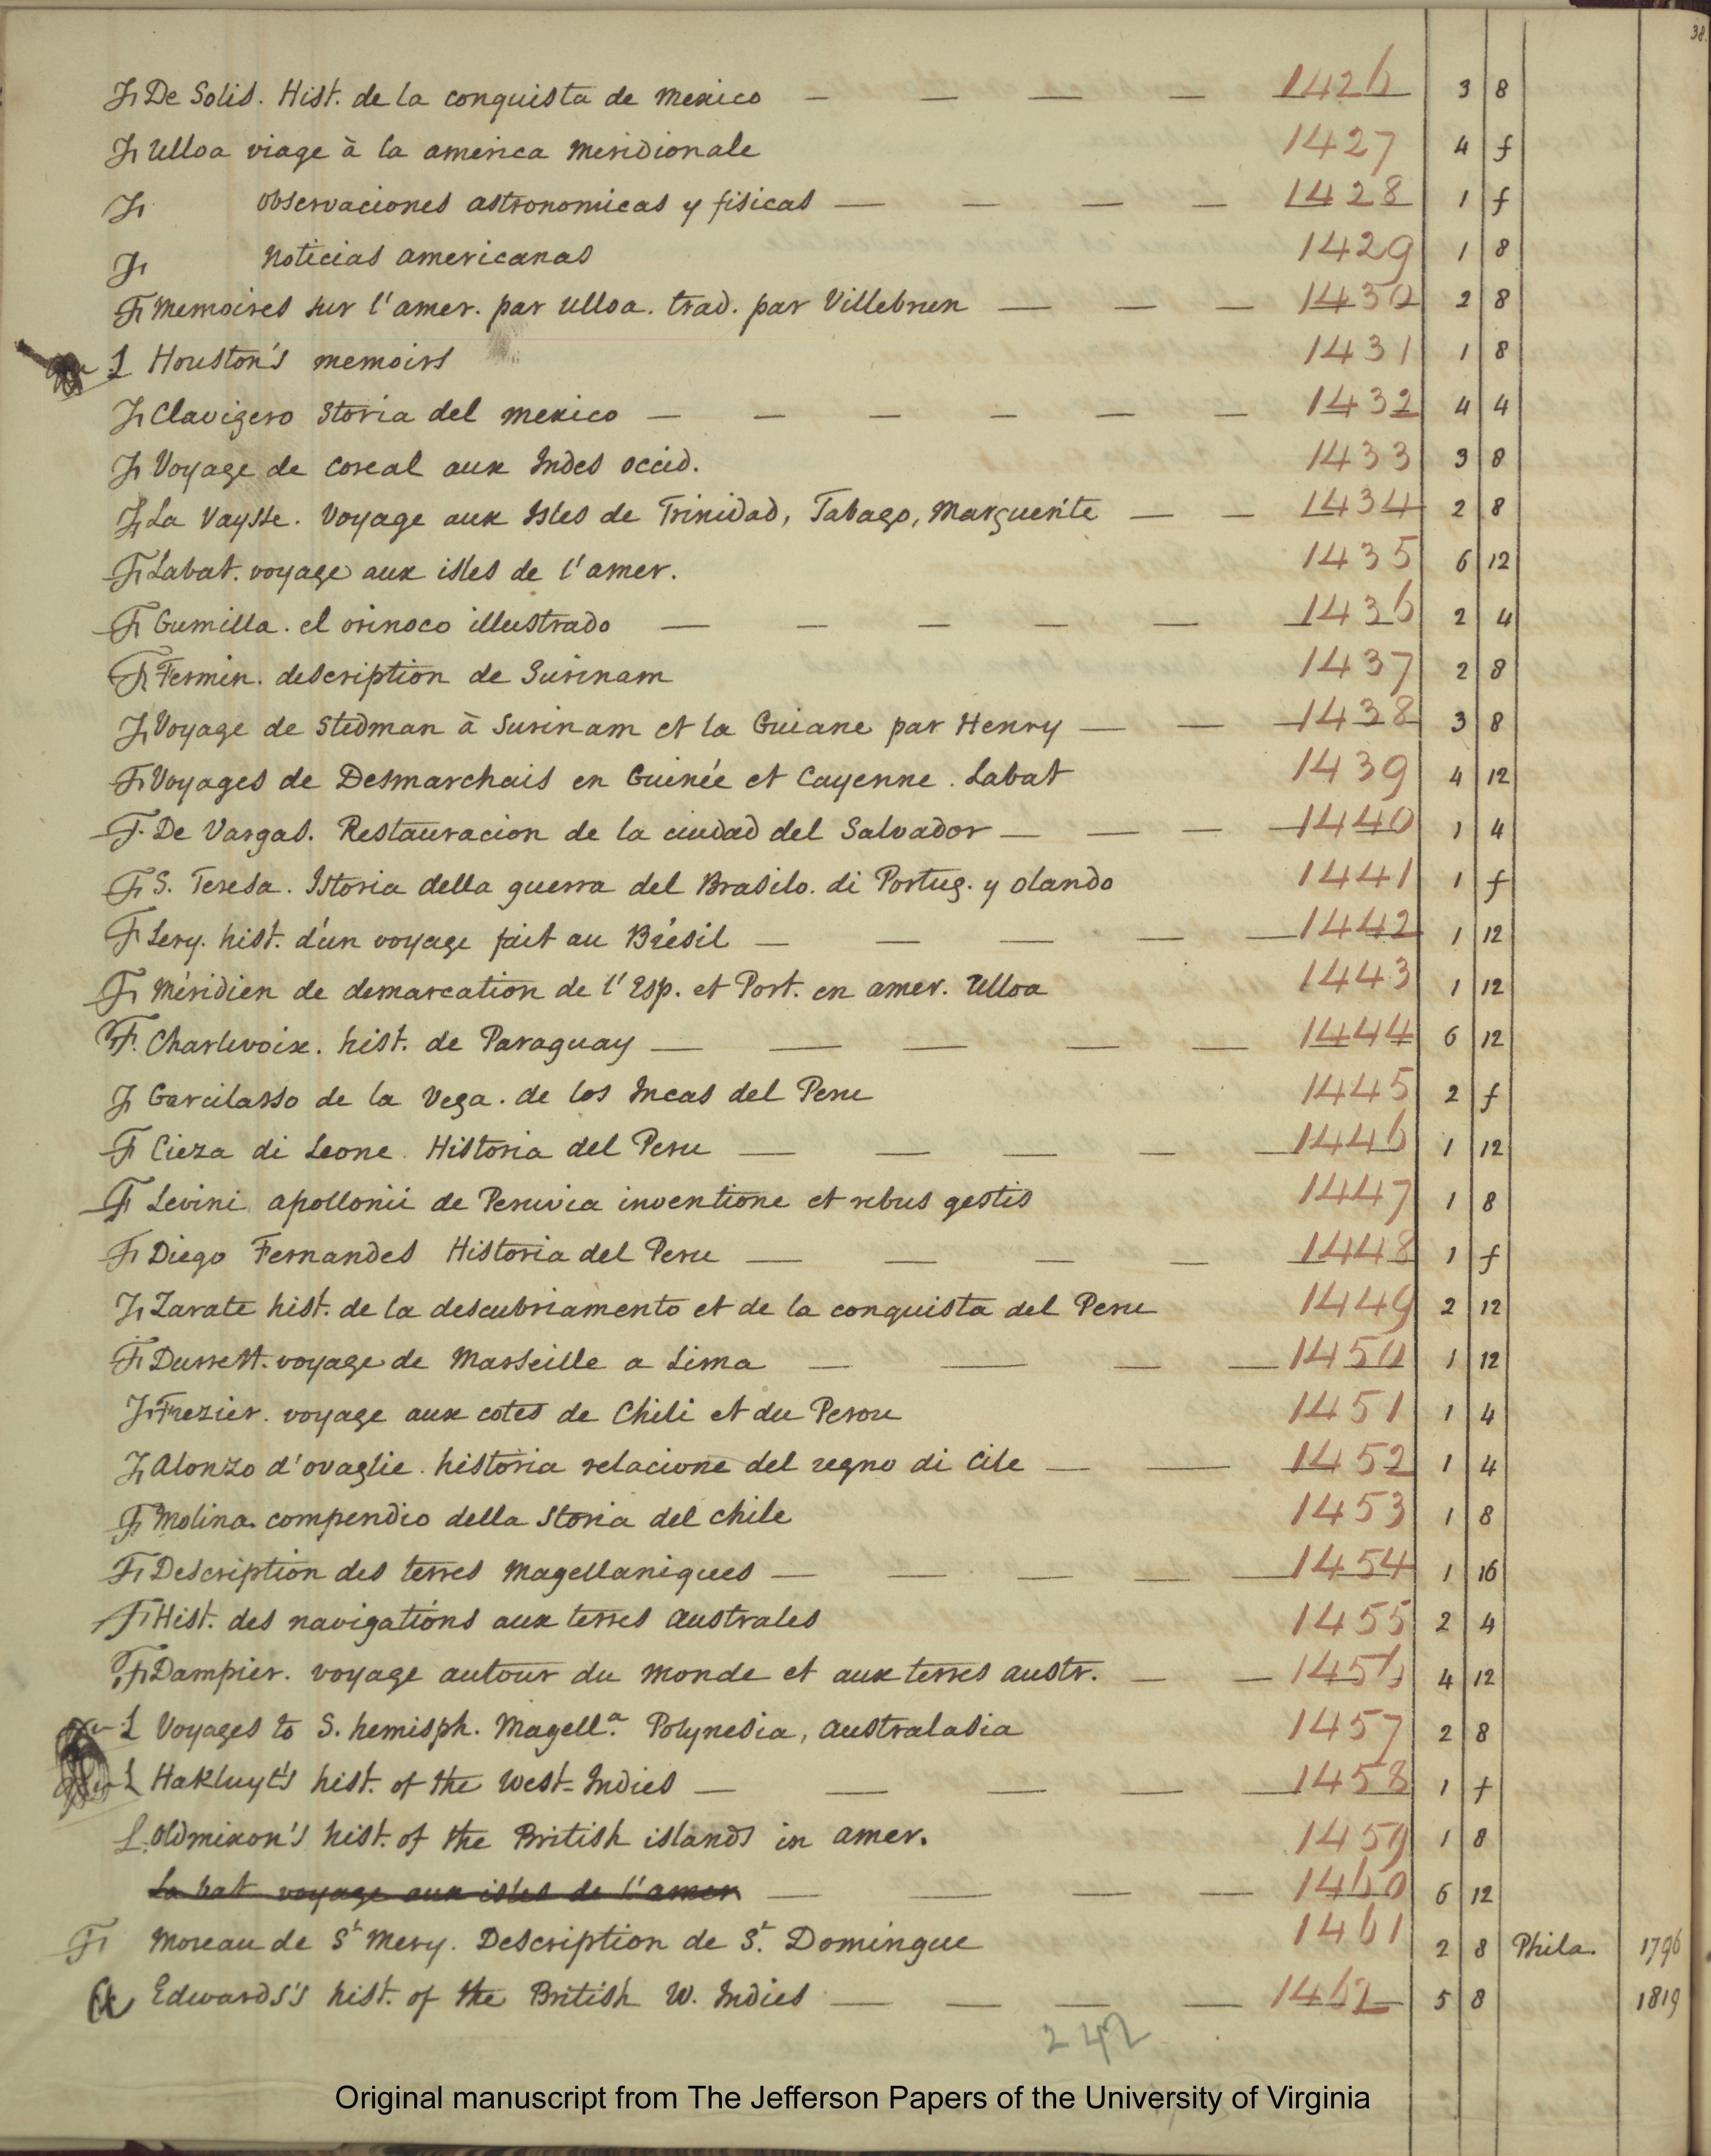 38.
F De Solis. Hist. de la conquista de Mexico — — — — 1426 3 8
F Ulloa viage à la america meridionale 1427 4 f
F observaciones astronomicas y fisicas — — — — 1428 1 f
F Noticias americanas 1429 1 8
F Memoires sur l'amer. par Ulloa. trad. par Villebrun — — — 1430 2 8
L Houston's memoirs 1431 1 8
F Clavigero Storia del Mexico — — — — — — 1432 4 4
F Voyage de Coreal aux Indes occid. 1433 3 8
F La Vaysse. Voyage aux Isles de Trinidad, Tabago, Marguerite — — 1434 2 8
F Labat. voyage aux isles de l'amer. 1435 6 12
F Gumilla. el orinoco illustrado — — — — — 1436 2 4
F Fermin. description de Surinam 1437 2 8
F Voyage de Stedman à Surinam et la Guiane par Henry — — 1438 3 8
F Voyages de Desmarchais en Guinée et Cayenne. Labat 1439 4 12
F. De Vargas. Restauracion de la ciudad del Salvador — — — 1440 1 4
F S. Teresa. Istoria della guerra del Brasilo. di Portug. y olando 1441 1 f
F Lery. hist. d'un voyage fait au Brésil — — — — — 1442 1 12
F Méridien de demarcation de l'Esp. et Port. en amer. Ulloa 1443 1 12
F. Charlevoix. hist. de Paraguay — — — — — 1444 6 12
F Garcilasso de la Vega. de los Incas del Peru 1445 2 f
F Cieza di Leone. Historia del Peru — — — — — 1446 1 12
F Levini apollonii de Peruvia inventione et rebus gestis 1447 1 8
F Diego Fernandes Historia del Peru — — — — 1448 1 f
F Zarate hist. de la descubriamento et de la conquista del Peru 1449 2 12
F Durrett. voyage de Marseille a Lima — — — — 1450 1 12
F Frezier. voyage aux cotes de Chili et du Perou 1451 1 4
F Alonzo d'ovaglie. historia relacione del regno di Cile — — 1452 1 4
F Molina. compendio della Storia del Chile 1453 1 8
F Description des terres Magellaniques — — — — — 1454 1 16
F Hist. des navigations aux terres australes 1455 2 4
F Dampier. voyage autour du Monde et aux terres austr. — — 1456 4 12
L Voyages to S. hemisph. Magell.a Polynesia, Australasia 1457 2 8
L Hakluyt's hist. of the West-Indies — — — — — 1458 1 f
L. Oldmixon's hist. of the British islands in amer. 1459 1 8
La bat voyage aux isles de l'amer — — — — 1460 6 12
F Moreau de St Mery. Description de St. Domingue 1461 2 8 Phila. 1796
Edwards's hist. of the British W. Indies — — — — 1462 5 8 1819
242
Original manuscript from The Jefferson Papers of the University of Virginia